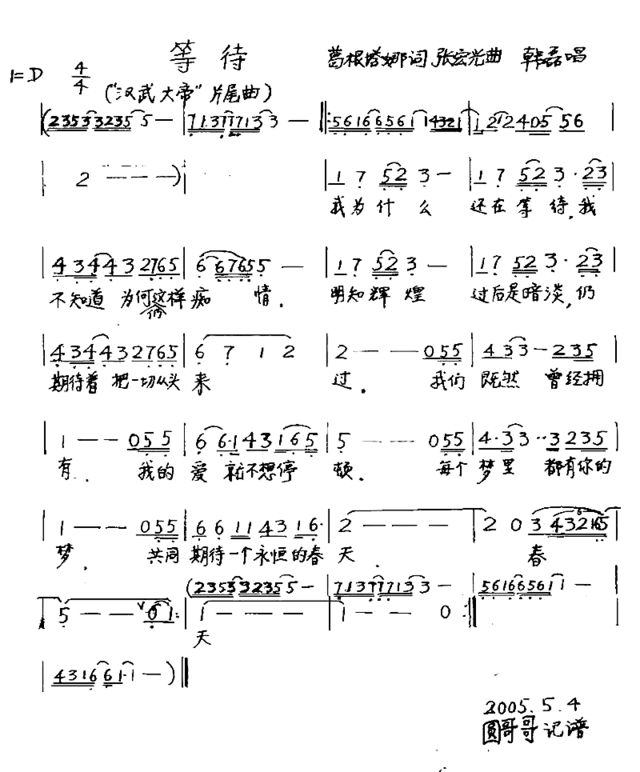 等待
葛根塔娜词 张宏光曲 韩磊唱
1=D 4/4
("汉武大帝"片尾曲)
(23533235 5 — | 7 1 3 1 7 7 1 3 3 — |: 5616 6561 14321 | 1 2 1 2 405 56 |
| 2 — — —) | | 1 7 52 3 — | 1 7 52 3 · 23 |
我为什么 还在等待,我
| 4 34 43 2765 | 6 67655 — | 1 7 52 3 — | 1 7 52 3 · 23 |
不知道 为何这样痴情. 明知辉煌 过后是暗淡,仍
| 4 34 432765 | 6 7 1 2 | 2 — — 055 | 4 33 — 235 |
期待着 把一切从头 来 过. 我们 既然 曾经拥
| 1 — — 055 | 6 6·1 43 165 | 5 — — 055 | 4·33··3235 |
有. 我的 爱 就不想停 顿. 每个 梦里 都有你的
| 1 — — 055 | 6 6 11 43 16· | 2 — — — | 2 0 3 43265 |
梦. 共同 期待一个永恒的春 天. 春
(23533235 5 — | 7 1 3 1 7 7 1 3 3 — | 561665611 —
| 5 — — 01 :| 1 — — — | 1 — — 0 :||
天
| 4316 61·1 — ) ||
2005.5.4
圆哥哥记谱